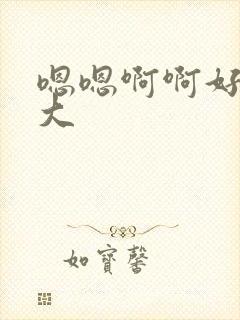 嗯嗯啊啊好
大
如寳馨